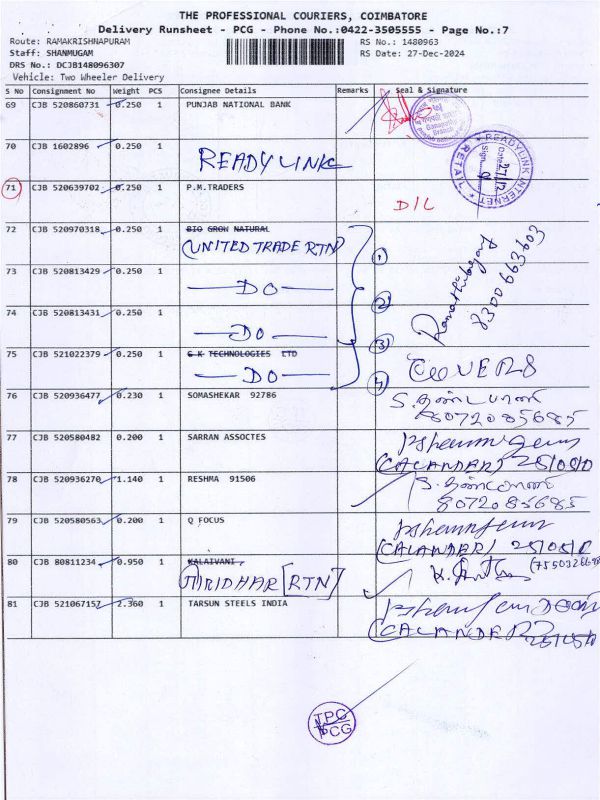 THE PROFESSIONAL COURIERS, COIMBATORE
Delivery Runsheet - PCG - Phone No.:0422-3505555 - Page No.:7
Route: RAMAKRISHNAPURAM RS No.: 1480963
Staff: SHANMUGAM RS Date: 27-Dec-2024
DRS No.: DCJB148096307
Vehicle: Two Wheeler Delivery
S No Consignment No Weight PCS Consignee Details Remarks Seal & Signature
69 CJB 520860731 0.250 1 PUNJAB NATIONAL BANK
70 CJB 1602896 0.250 1
READYLINK
READYLINK INTERNET
RETAIL
Date: 27/12
Sign:
71 CJB 520639702 0.250 1 P.M.TRADERS
D/L
72 CJB 520970318 0.250 1 BIO GRON NATURAL
(UNITED TRADE RTN) 1
73 CJB 520813429 0.250 1
DO 2
8300663603
74 CJB 520813431 0.250 1
DO 3
75 CJB 521022379 0.250 1 G K TECHNOLOGIES LTD
DO 4
76 CJB 520936477 0.230 1 SOMASHEKAR 92786
8072085685
77 CJB 520580482 0.200 1 SARRAN ASSOCTES
(CALANDER)
78 CJB 520936270 1.140 1 RESHMA 91506
8072085685
79 CJB 520580563 0.200 1 Q FOCUS
(CALANDER)
80 CJB 80811234 0.950 1 KALAIVANI,
GIRIDHAR [RTN]
81 CJB 521067157 2.360 1 TARSUN STEELS INDIA
(CALANDER)
TPC
PCG